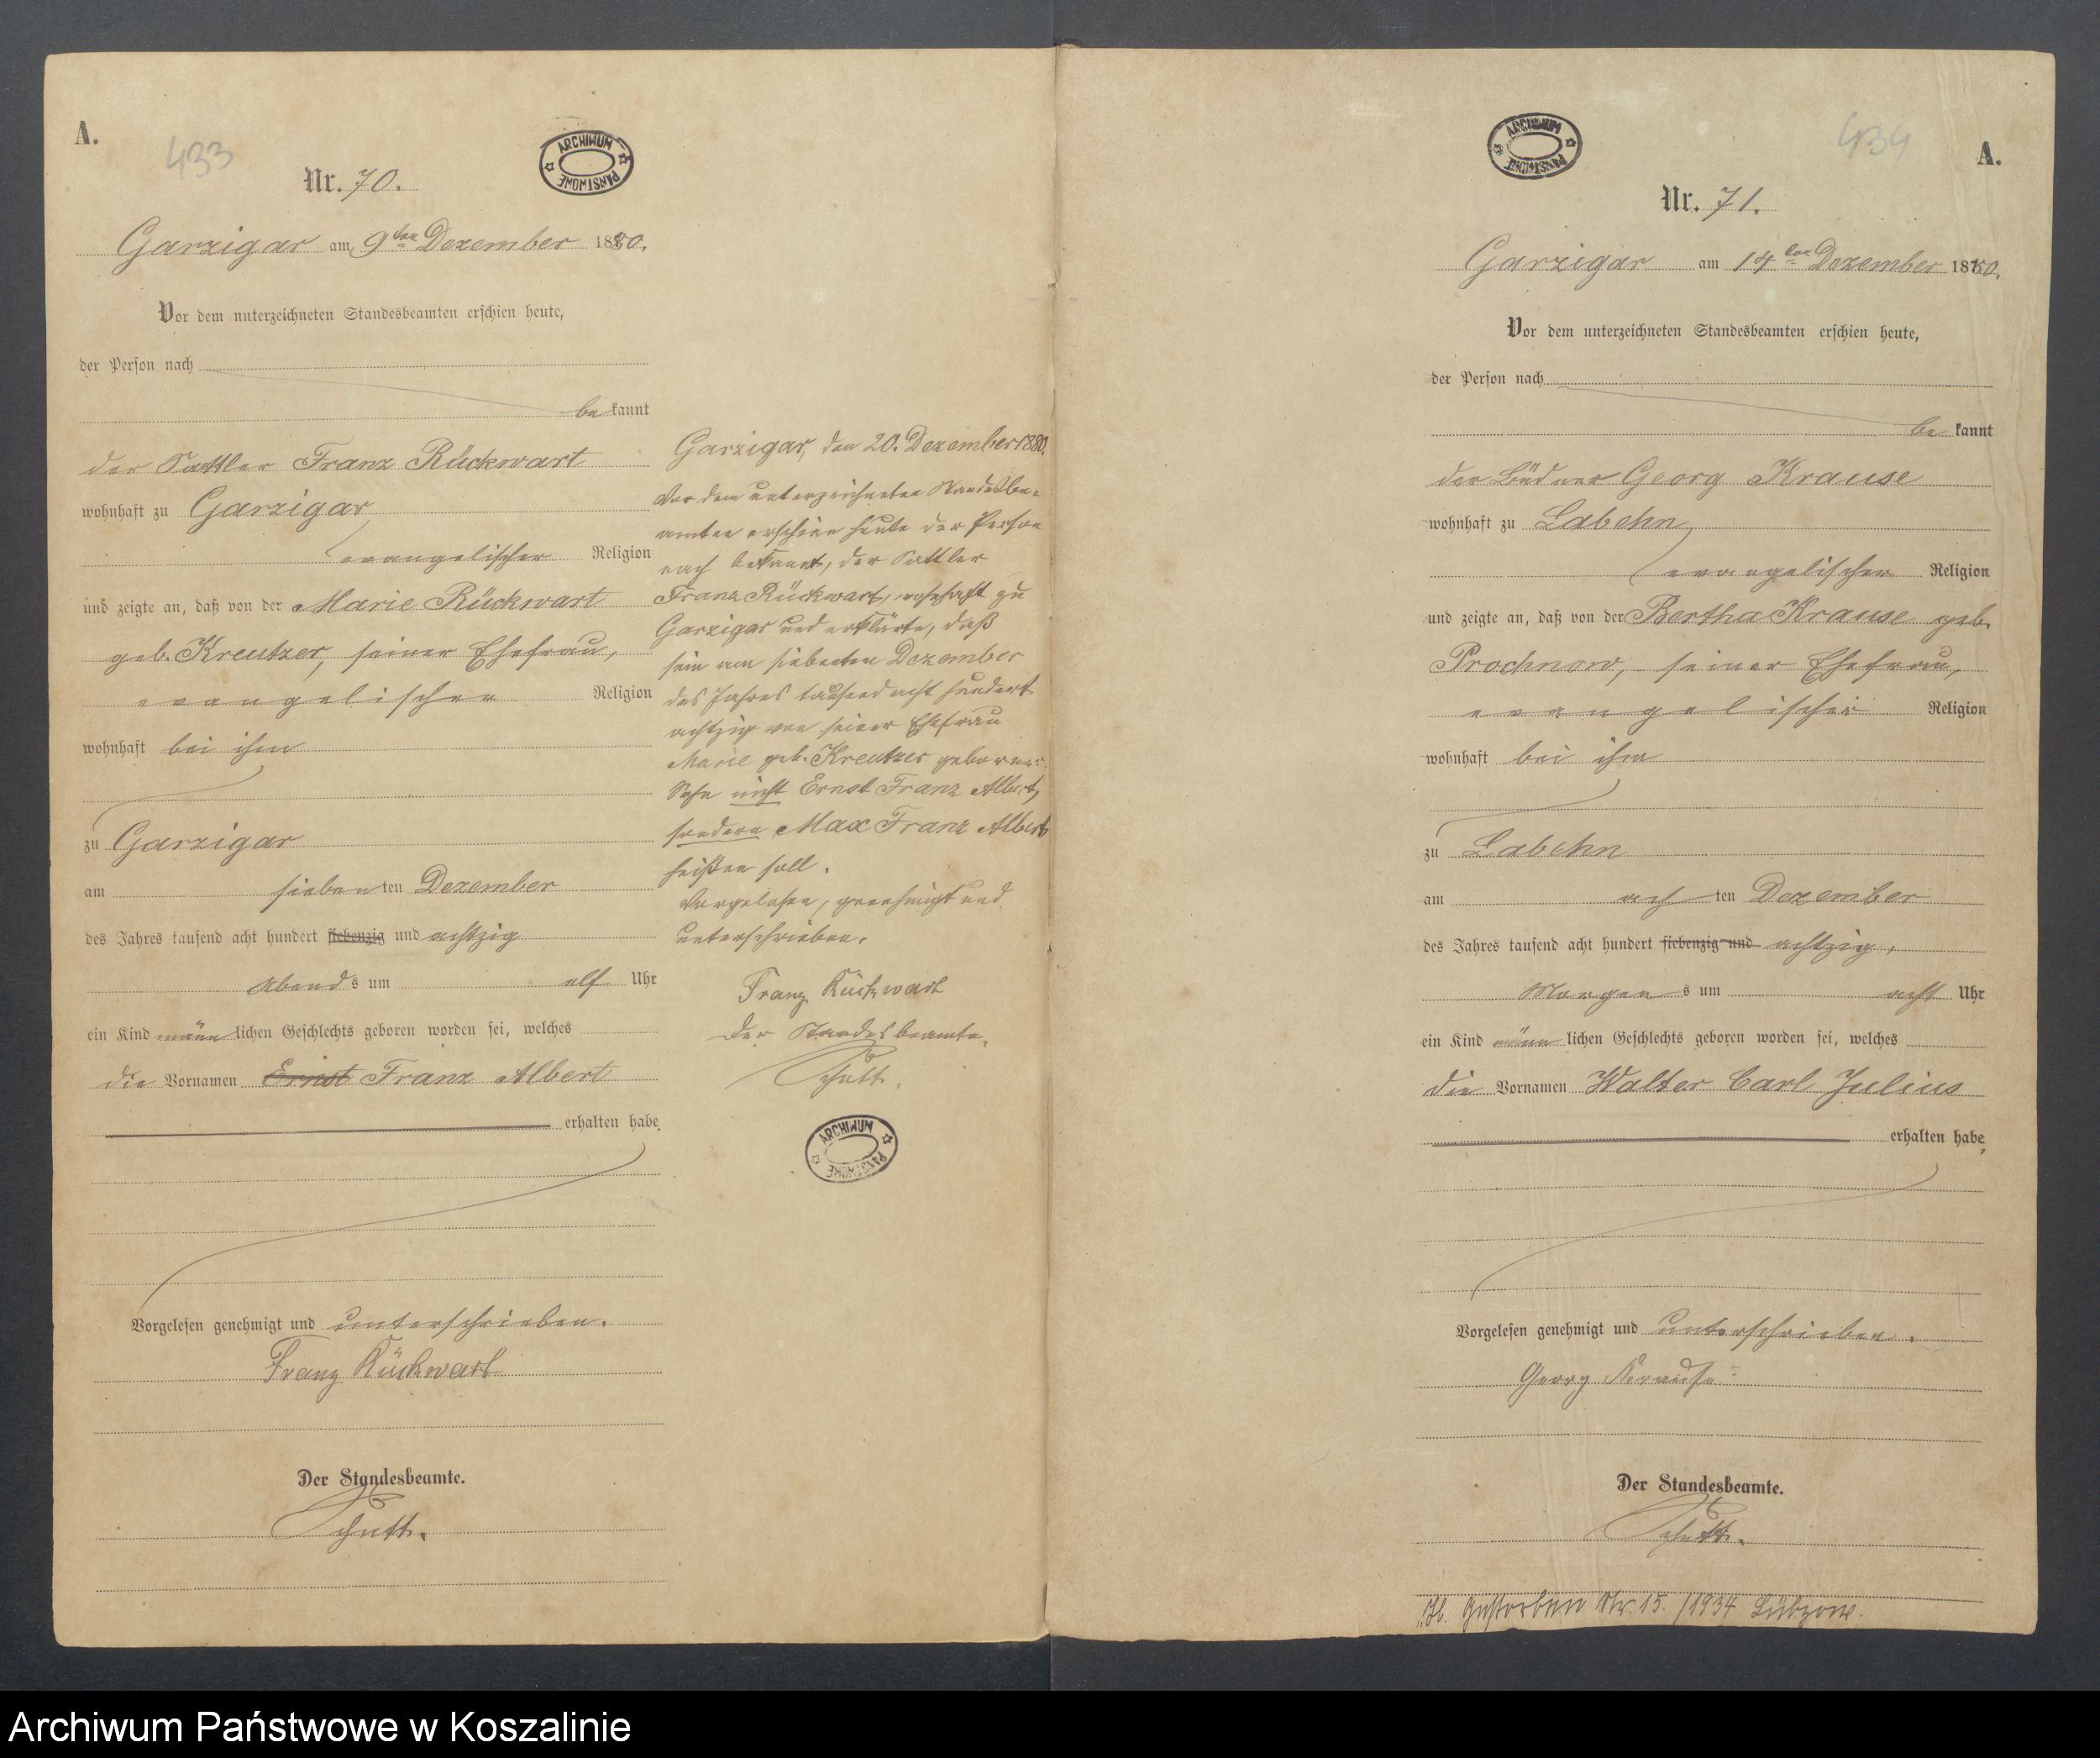 A.
433
Nr. 70.
ARCHIWUM PAŃSTWOWE
Garzigar am 9ten Dezember 1880.
Vor dem unterzeichneten Standesbeamten erschien heute,
der Person nach
be kannt
der Sattler Franz Rückwart
wohnhaft zu Garzigar
evangelischer Religion
und zeigte an, daß von der Marie Rückwart
geb. Kreutzer, seiner Ehefrau,
evangelischer Religion
wohnhaft bei ihm
zu Garzigar
am sieben ten Dezember
des Jahres tausend acht hundert siebenzig und achtzig
Abend s um elf Uhr
ein Kind männ lichen Geschlechts geboren worden sei, welches
die Vornamen Ernst Franz Albert
erhalten habe
Vorgelesen genehmigt und unterschrieben.
Franz Rückwart
Der Standesbeamte.
Schutt.
Garzigar, den 20. Dezember 1880.
Vor dem unterzeichneten Standesbe-
amten erschien heute der Person
nach bekannt, der Sattler
Franz Rückwart, wohnhaft zu
Garzigar und erklärte, daß
sein am siebenten Dezember
des Jahres tausend acht hundert
achtzig von seiner Ehefrau
Marie geb. Kreutzer geborener
Sohn nicht Ernst Franz Albert,
sondern Max Franz Albert
heißen soll.
Vorgelesen, genehmigt und
unterschrieben.
Franz Rückwart
Der Standesbeamte.
Schutt.
ARCHIWUM PAŃSTWOWE
ARCHIWUM PAŃSTWOWE
434
A.
Nr. 71.
Garzigar am 14ten Dezember 1880.
Vor dem unterzeichneten Standesbeamten erschien heute,
der Person nach
be kannt
der Büdner Georg Krause
wohnhaft zu Labehn
evangelischer Religion
und zeigte an, daß von der Bertha Krause geb.
Prochnow, seiner Ehefrau,
evangelischer Religion
wohnhaft bei ihm
zu Labehn
am ach ten Dezember
des Jahres tausend acht hundert siebenzig und achtzig,
Morgen s um acht Uhr
ein Kind männ lichen Geschlechts geboren worden sei, welches
die Vornamen Walter Carl Julius
erhalten habe
Vorgelesen genehmigt und unterschrieben.
Georg Krause
Der Standesbeamte.
Schutt.
Gestorben Nr. 15. /1934 Lübzow.
Archiwum Państwowe w Koszalinie